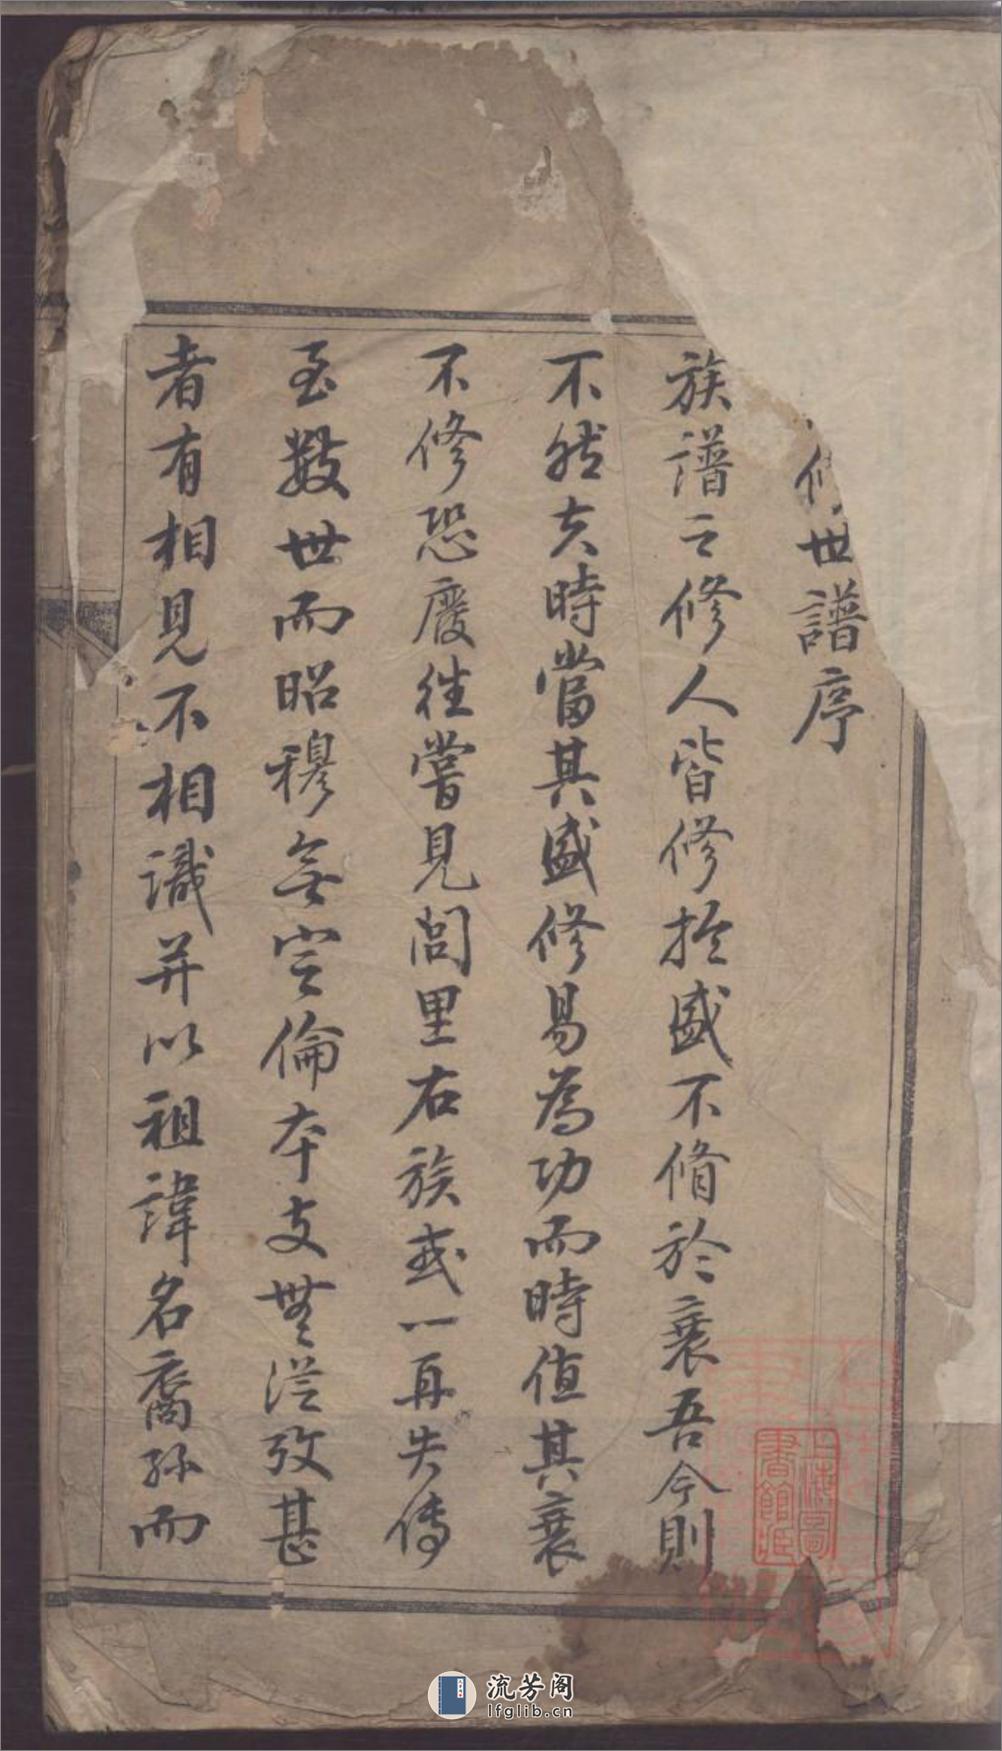 修世譜序
族譜之修人皆修扵盛不脩於衰吾今則
不然夫時當其盛修易為功而時值其衰
不修恐廢往嘗見閭里右族或一再失傳
至數世而昭穆無定倫本支無從攷甚
者有相見不相識并以祖諱名裔孫而
上海圖書館藏
流芳阁
lfglib.cn